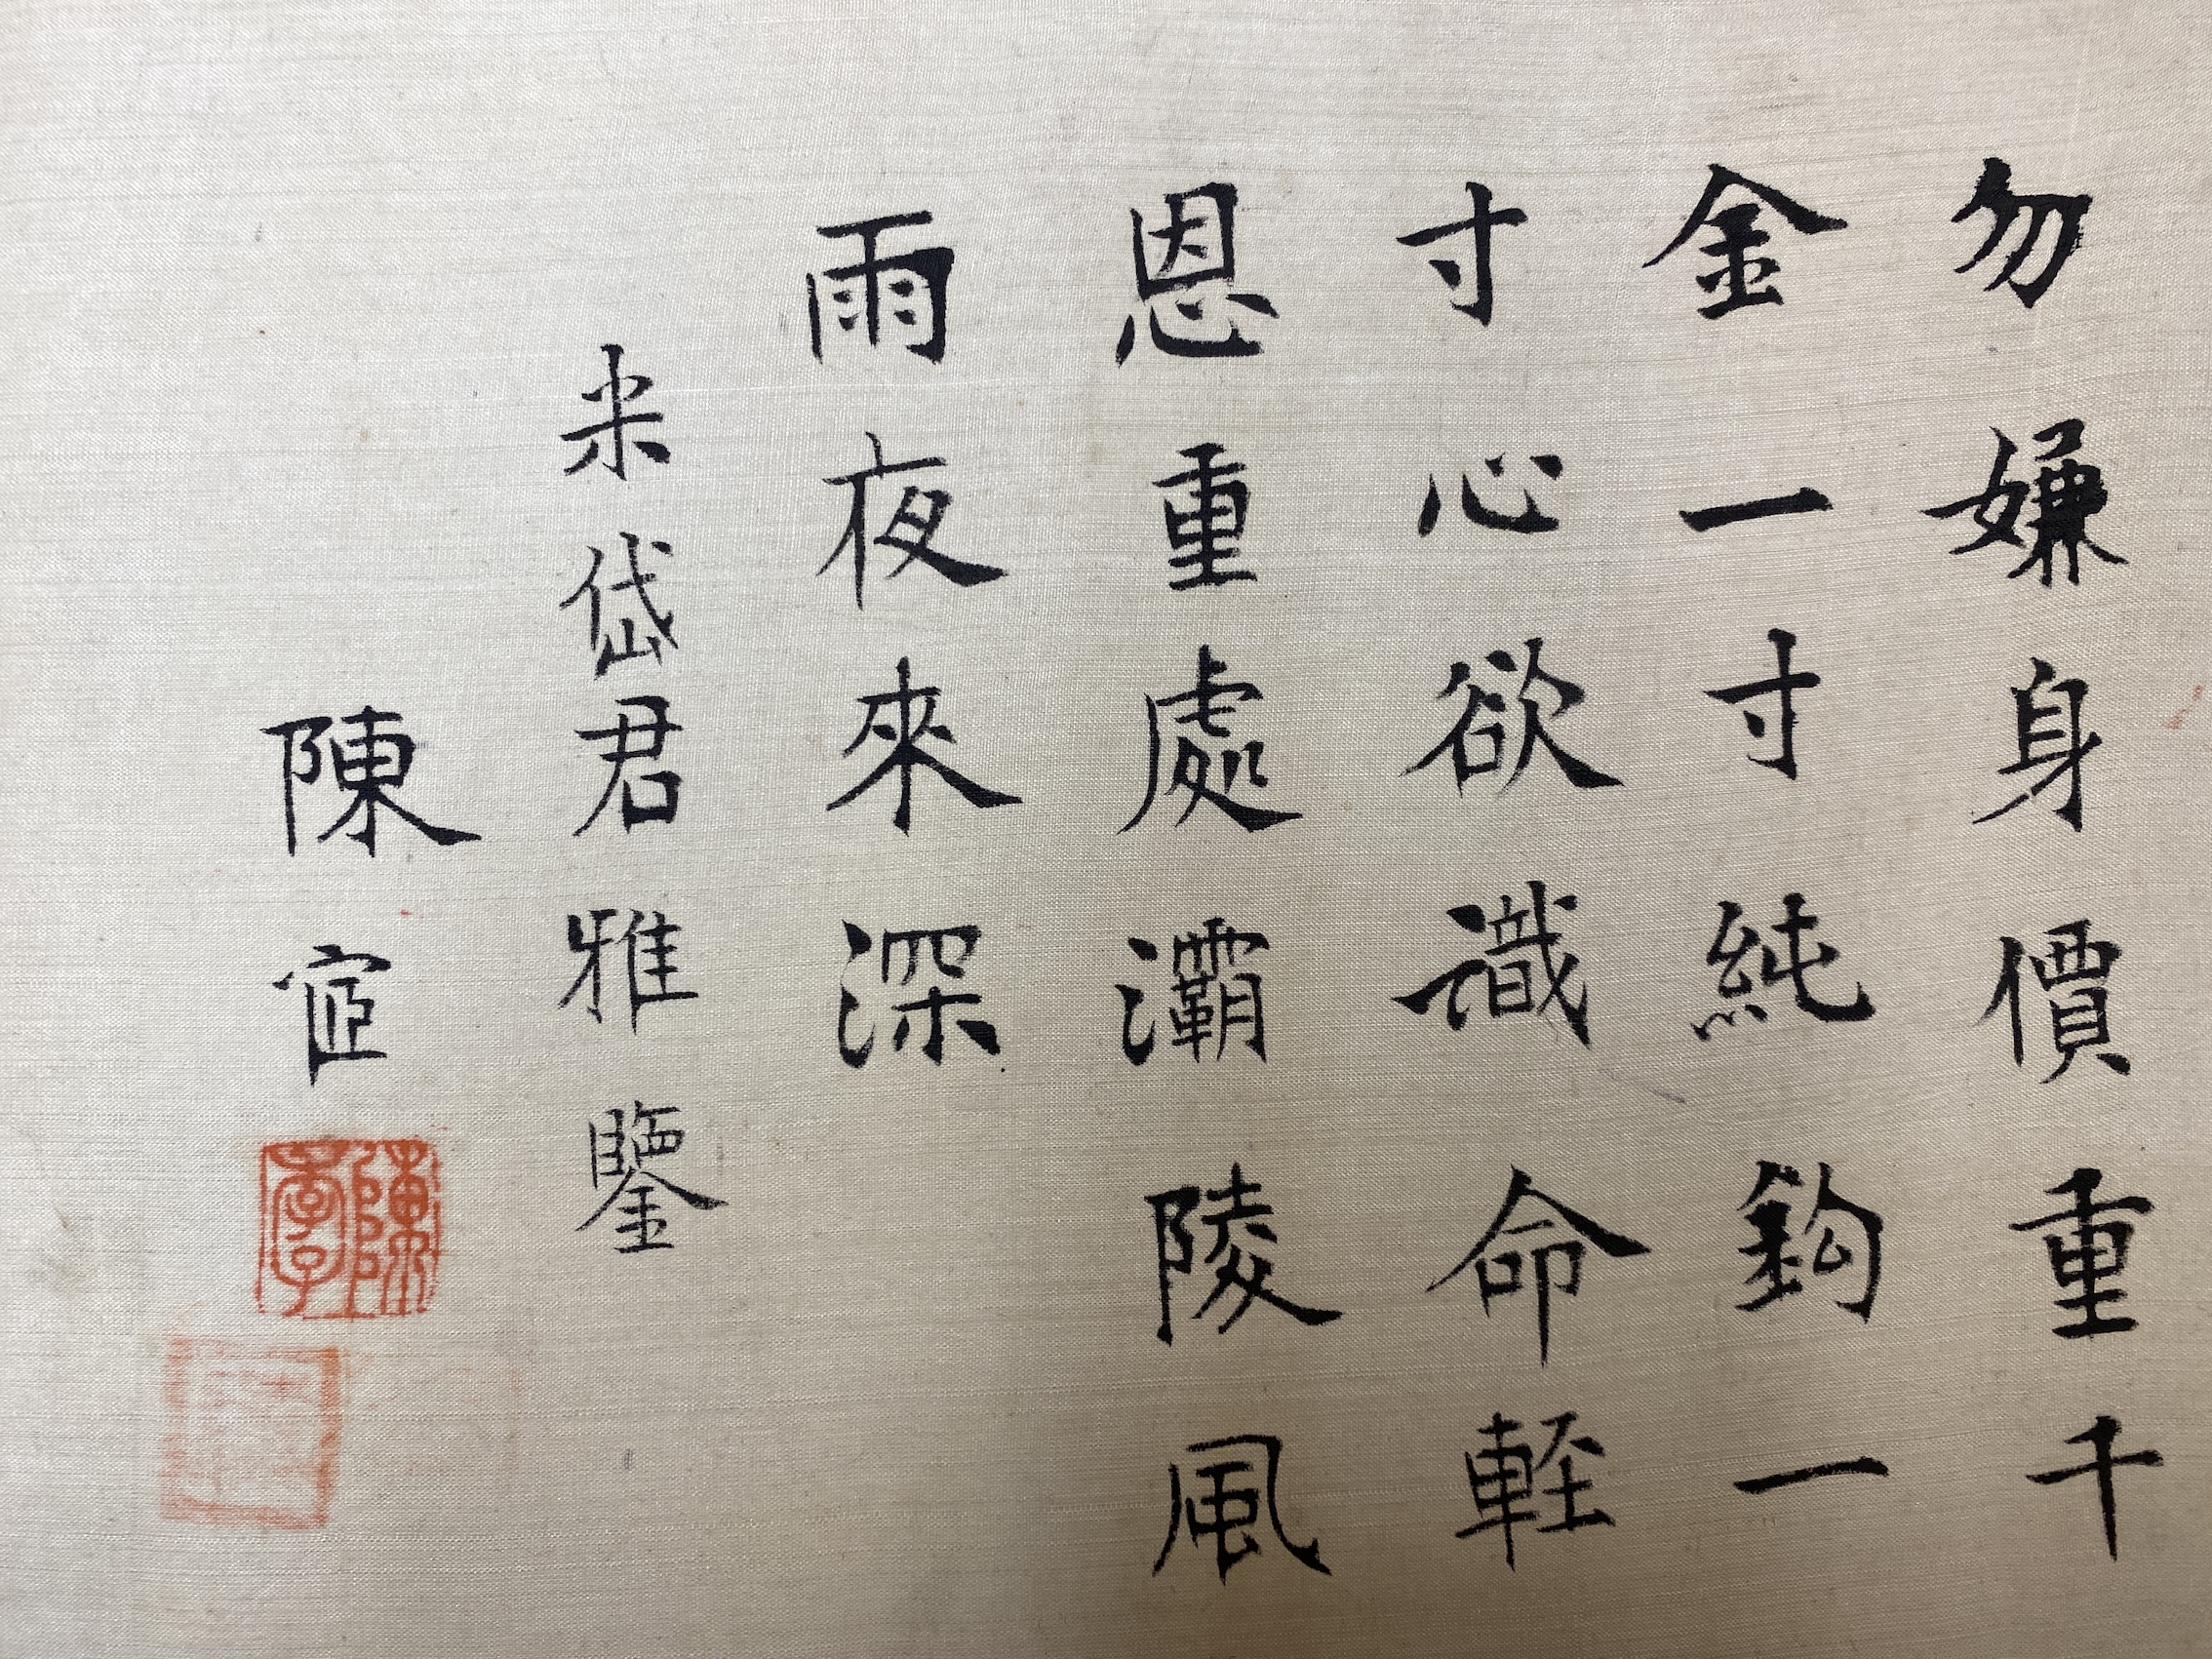 勿嫌身價重千
金一寸純鈎一
寸心欲識命輕
恩重處灞陵風
雨夜來深
米岱君雅鑒
陳宧